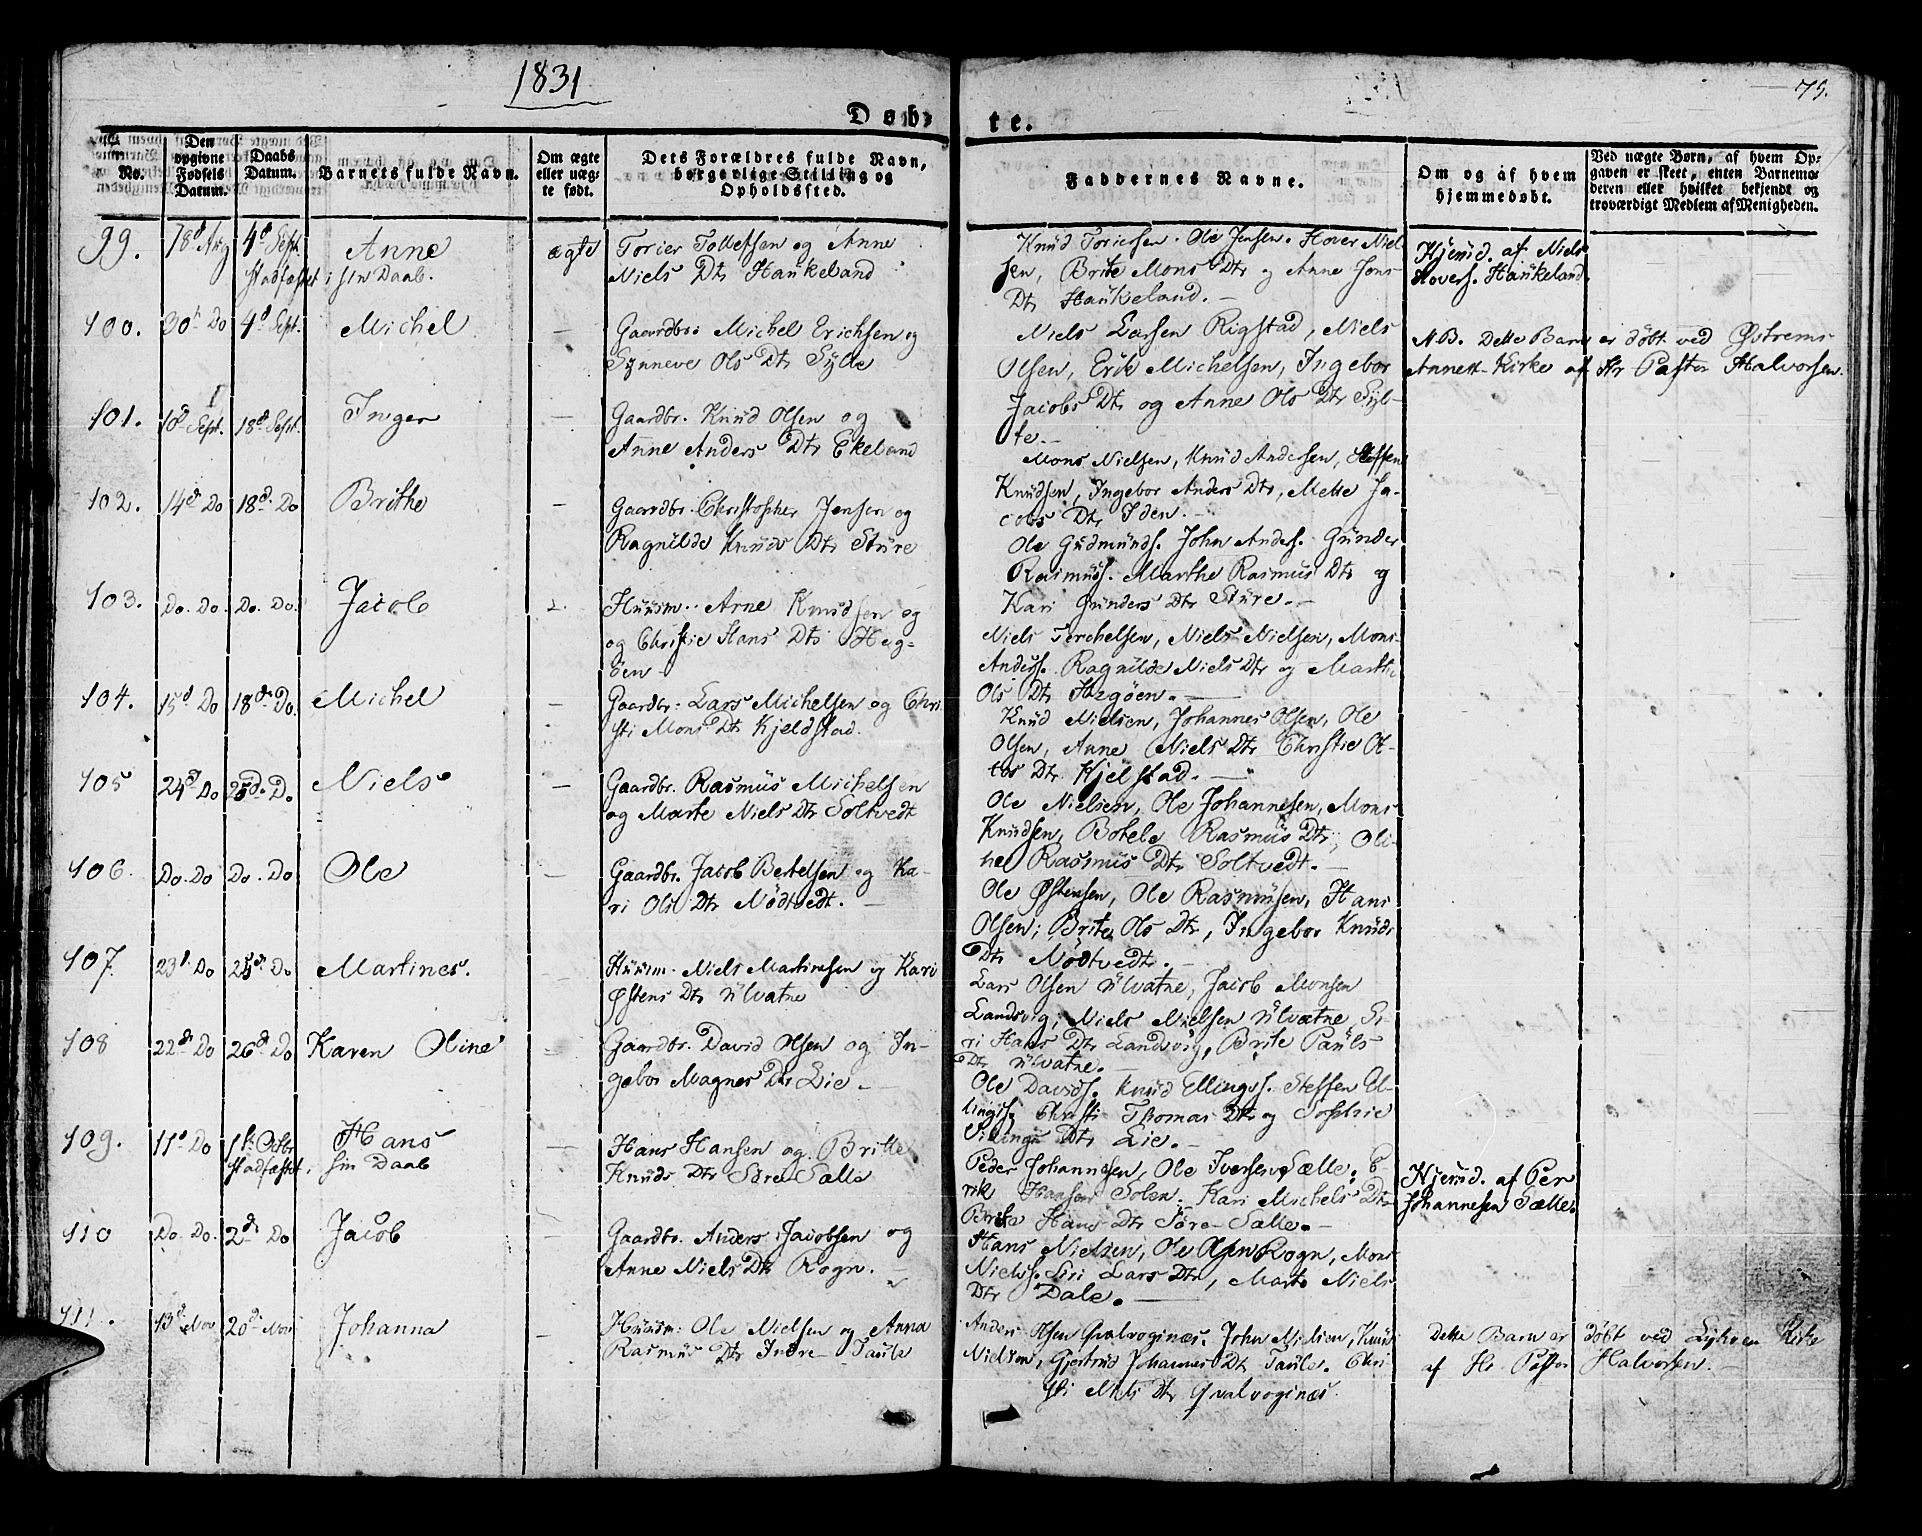 1831
75.
Døb-
te.
No.
Den opgivne Fødsels Datum.
Daabs Datum.
Barnets fulde Navn.
Om ægte eller uægte født.
Dets Forældres fulde Navn, borgerlige Stilling og Opholdssted.
Faddernes Navne.
Om og af hvem hjemmedøbt.
Ved uægte Børn, af hvem Op-
gaven er skeet, enten Barnemo-
deren eller hvilket bekjendt og
troværdigt Medlem af Menigheden.
99. 18d Aug 4d Sept. Anne ægte
stadfæstet i sin Daab.
Torier Tollefsen og Anne
Niels Dtr Haukeland
Knud Toriersen. Ole Jensen. Hover Niel-
sen, Brite Mons Dtr og Anne Jons
Dtr Haukeland. -
Hjemd. af Niels
Hovers. Haukeland.
100. 30t Do 4d Sept. Michel -
Gaardbr: Michel Erichsen og
Synneve Ols Dtr Sylte
Niels Larsen Rigstad, Niels
Olsen, Erik Michelsen, Ingebor
Jacobs Dtr og Anne Ols Dtr Syl-
te. -
N.B. Dette Barn er døbt ved Østrems
Annex-Kirke af Hr Pastor Halvorsen.
101. 10d Sept. 18d Sept. Inger -
Gaardbr. Knud Olsen og
Anne Anders Dtr Ekeland
Mons Nielsen, Knud Andersen, Steffen
Knudsen, Ingebor Anders Dtr, Mette Ja-
cobs Dtr Iden. -
102. 14d Do 18d Do Brithe -
Gaardbr. Christopher Jensen og
Ragnilde Knuds Dtr Sture
Ole Gudmunds. John Anders. Gunder
Rasmuds. Marthe Rasmus Dtr og
Kari Gunders Dtr Sture. -
103. Do. Do. Do. Do. Jacob
Huusm. Arne Knudsen og
og Christie Hans Dtr Heg-
öen -
Niels Terchelsen, Niels Nielsen, Mons
Anders. Ragnilde Niels Dtr og Marthe
Ols Dtr Hegöen. -
104. 15d Do 18d Do. Michel -
Gaardbr: Lars Michelsen og Chri
sti Mons Dtr Kjeldstad.
Knud Nielsen, Johannes Olsen, Ole
Olsen, Anne Niels Dtr Christie Ol-
Dtr Kjelstad. -
105 24d Do 25d. D. Niels -
Gaardbr. Rasmus Michelsen
og Marte Niels Dtr Soltvedt
Ole Nielsen, Ole Johannesen, Mons
Knudsen, Botele Rasmus Dtr, Oli-
he Rasmus Dtr Soltvedt. -
106. Do. Do Do. Do Ole -
Gaardbr. Jacob Bertelsen og Ka-
ri Ols Dtr Nödtvedt. -
Ole Østensen, Ole Rasmusen, Hans
Olsen, Brite Ols Dtr, Ingebor Knuds
Dtr Nödtvedt. -
107. 23d Do 25d Do Martines.
Huusm. Niels Martinesen og Kari
Østens Dtr Ulvatne
Lars Olsen Ulvatne, Jacob Monsen
Landsvig, Niels Nielsen Ulvatne, Si-
ri Hans Dtr Landsvig, Brite Pauls
Dtr Ulvatne. -
108 22d Do 26d Do Karen Oline
Gaardbr. David Olsen og In-
gebor Magnes Dtr Lie. -
Ole Davids. Knud Ellings. Steffen El-
lings, Christi Thomas Dtr og Sophie
Dtr Lie. -
109. 11d Do 1ste Octbr Hans -
stadfæstet. sin Daab
Hans Hansen og Britte
Knuds Dtr Søre Sælle
Peder Johannesen, Ole Iversen Sælle. E-
rik Hansen Solen. Kari Michels Dtr
Brite Hans Dtr Søre Sælle. -
Hjemd. af Per
Johannesen Sælle.
110 Do. Do. 2d Do Jacob
Gaardbr. Anders Jacobsen og
Anne Niels Dtr Rogn. -
Hans Nielsen, Ole Olsen Rogn, Mons
Niels. Siri Lars Dtr, Marte Niels
Dtr Dale. -
111. 13d Nov 20d Nov Johanna -
Huusm: Ole Nielsen og Anna
Rasmus Dtr Indre Taule
Anders Olsen Qvalvoginæs. John Nielsen, Knud
Nielsen, Gjertrud Johannes Dtr Taule. Chri-
sti Niels Dtr Qvalvoginæs.
Dette Barn er døbt ved Kirke
af Hr Pastor Halvorsen.